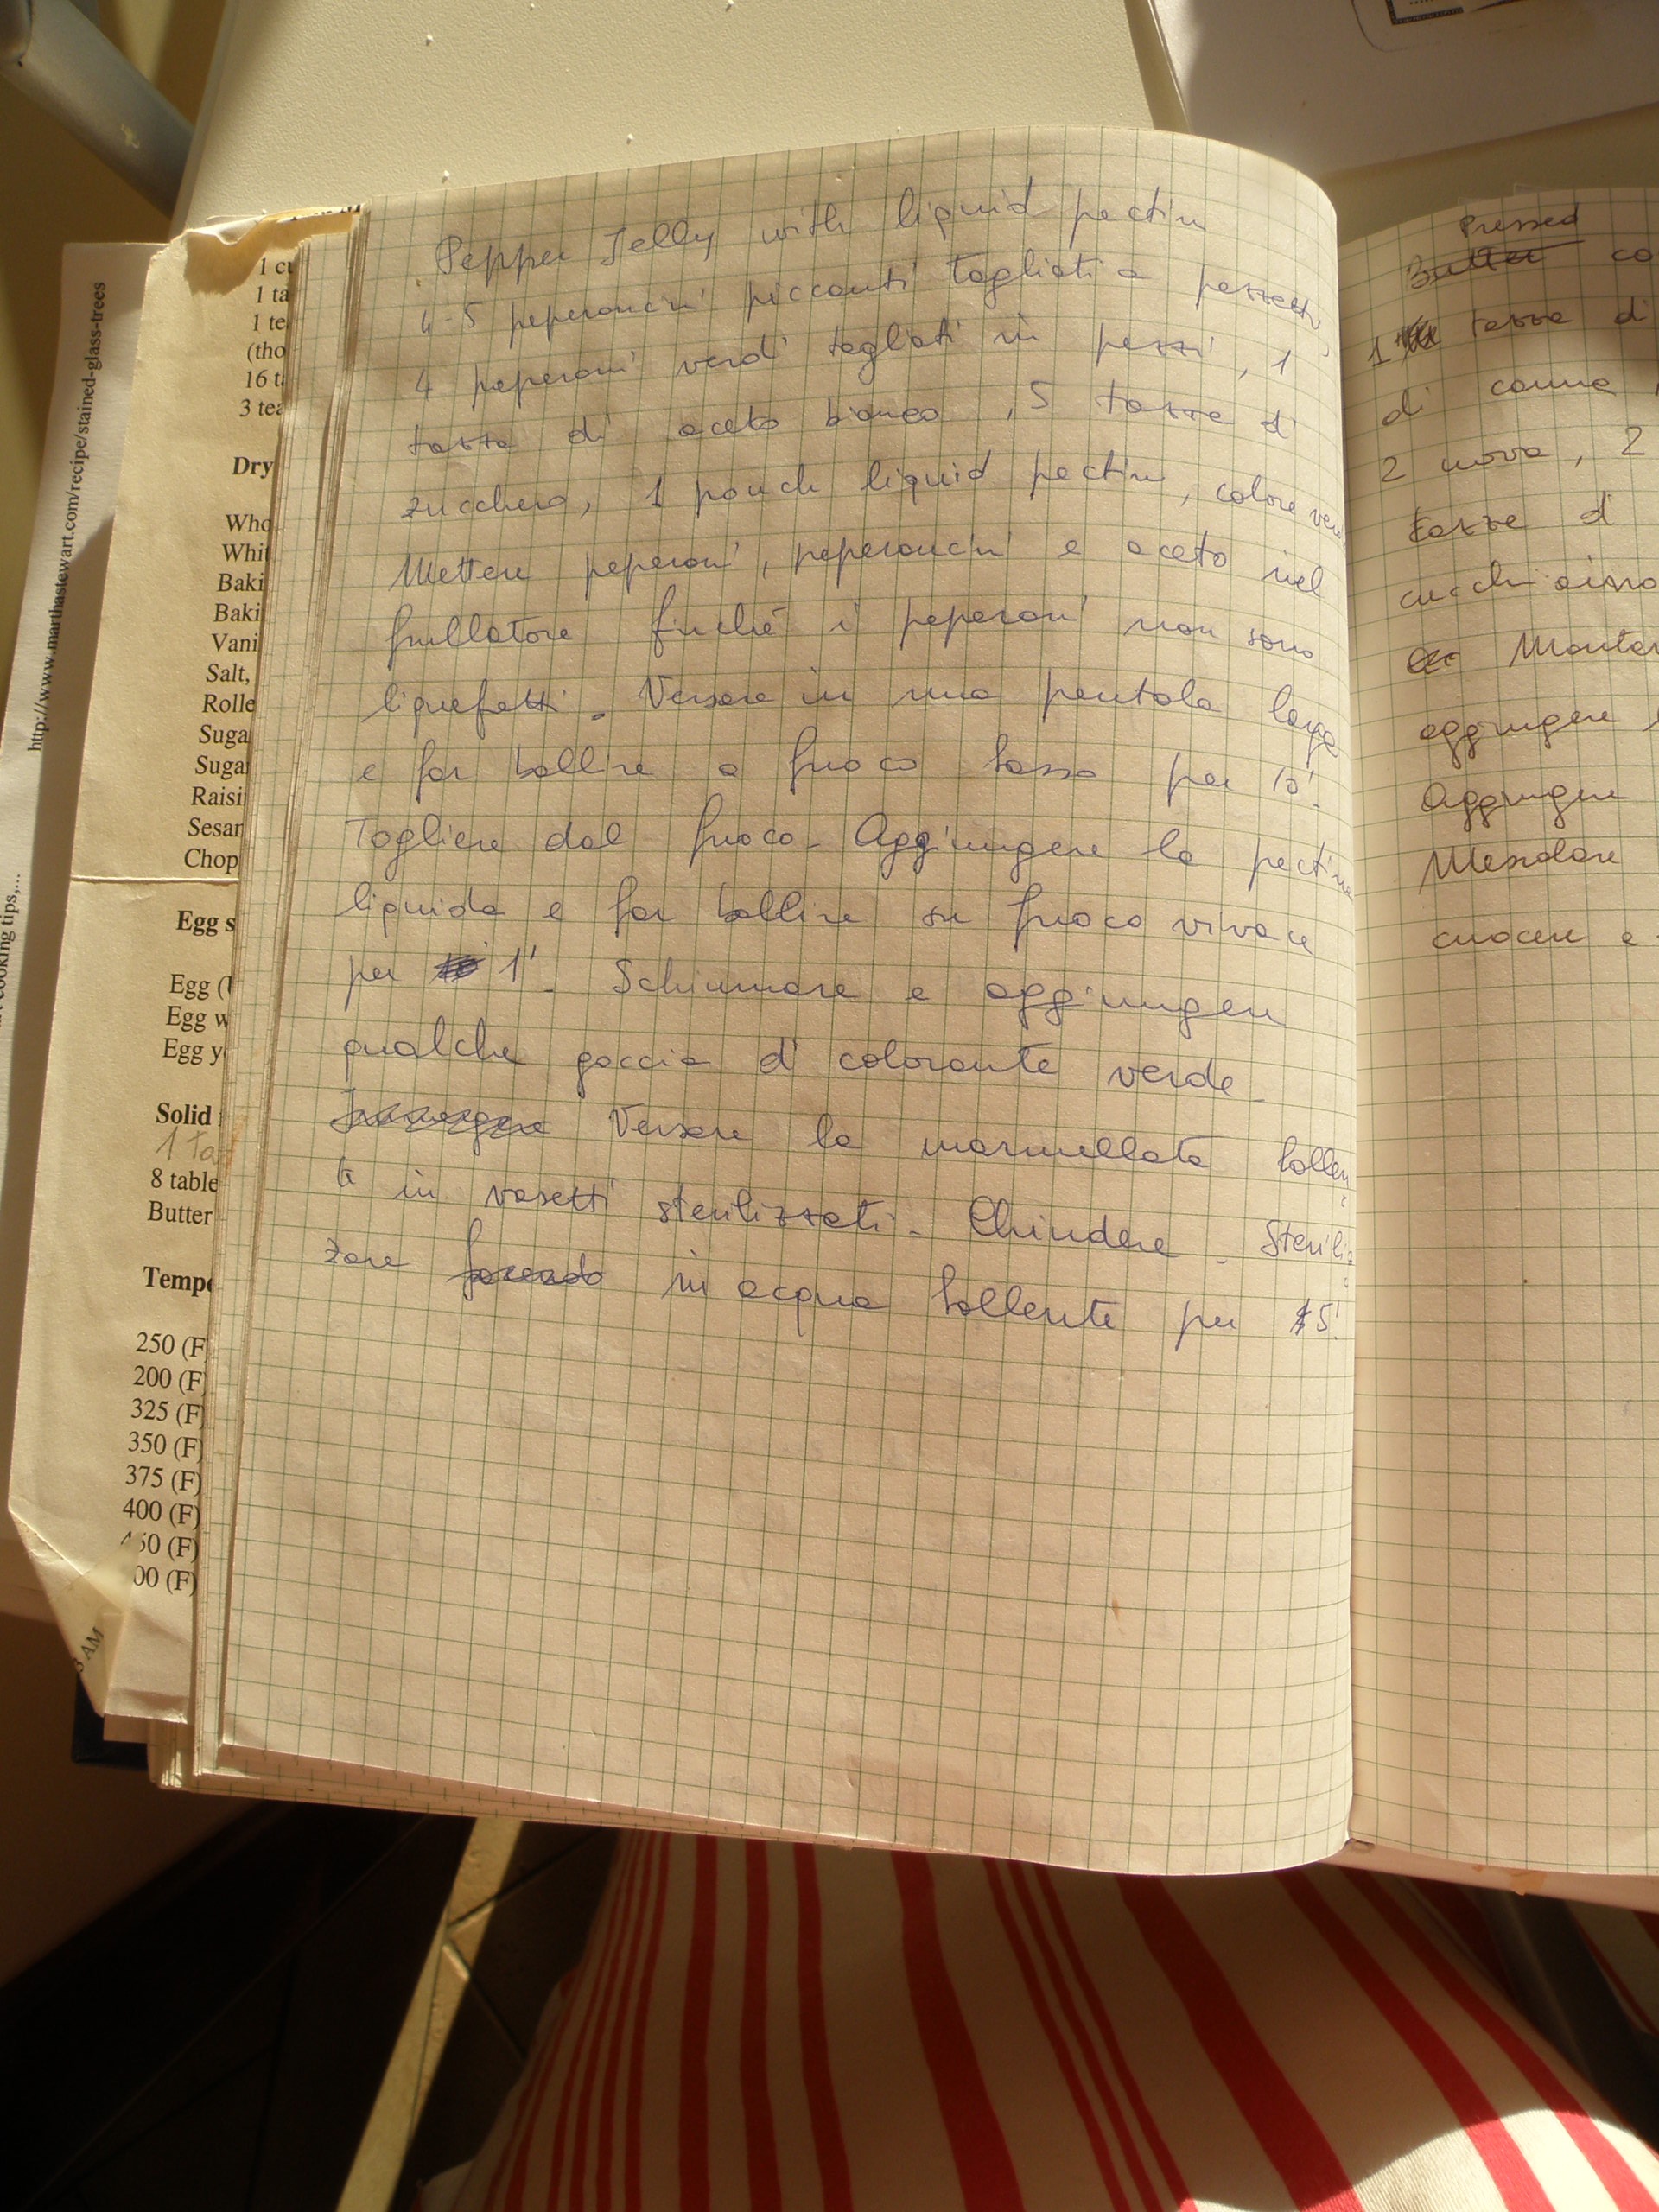 http://www.marthastewart.com/recipe/stained-glass-trees
cooking tips,...
1 cu
1 ta
1 te
(tho
16 t
3 tea
Dry
Who
Whit
Baki
Baki
Vani
Salt,
Rolle
Suga
Suga
Raisi
Sesar
Chop
Egg s
Egg (
Egg w
Egg y
Solid
1 ta
8 table
Butter
Tempe
250 (F)
200 (F)
325 (F)
350 (F)
375 (F)
400 (F)
450 (F)
00 (F)
3 AM
Pepper Jelly with liquid pectin
4-5 peperoncini piccanti tagliati a pezzetti,
4 peperoni verdi tagliati in pezzi, 1
tazza di aceto bianco, 5 tazze di
zucchero, 1 pouch liquid pectin, colore verde
Mettere peperoni, peperoncini e aceto nel
frullatore finché i peperoni non sono
liquefatti. Versare in una pentola larga
e far bollire a fuoco basso per 10'.
Togliere dal fuoco. Aggiungere la pectina
liquida e far bollire su fuoco vivace
per 1'. Schiumare e aggiungere
qualche goccia di colorante verde.
Versare la marmellata bollen
te in vasetti sterilizzati. Chiudere. Steriliz
zare facendo in acqua bollente per 5'.
Pressed
Butter co
1 tazza di
di canna
2 uova, 2
tazze di
cucchiaino
Montar
aggiungere
Aggiungere
Mescolare
cuocere e